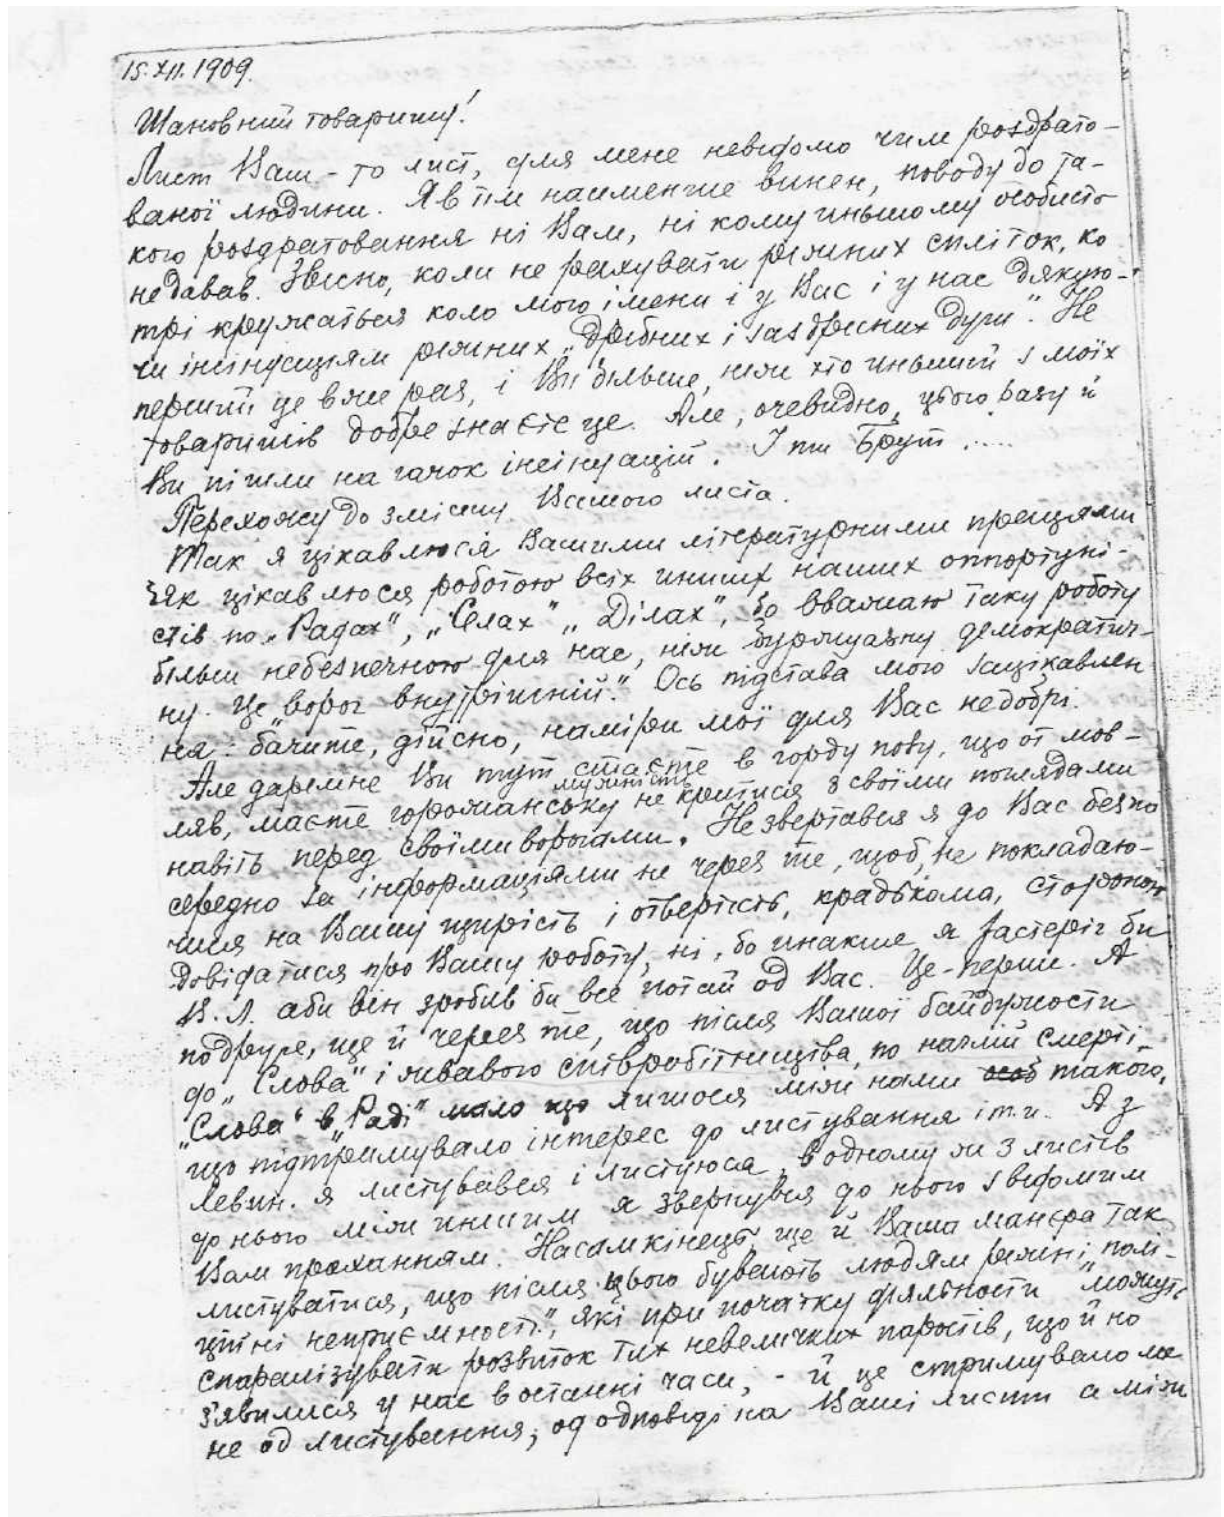 15.XII.1909.
Шановний товаришу!
Лист Ваш - то лист, для мене невідомо чим роздрато-
ваної людини. Я в тім найменше винен, поводу до та-
кого роздратовання ні Вам, ні кому иньшому особисто
не давав. Звісно, коли не рахувати ріжних спліток, ко
трі кружаться коло мого імени і у Вас і у нас дякую-
чи інсінуаціям ріжних „дрібних і заздрісних душ". Не
перший це вже раз, і Ви більше, ніж хто иньший з моїх
товаришів добре знаєте це. Але, очевидно, цього разу й
Ви пішли на гачок інсінуацій. І ти Брут .....
Перехожу до змісту Вашого листа.
Так я цікавлюся Вашими літературними працями
як цікавлюся роботою всіх инших наших оппортуні-
стів по „Радах", „Селах" „Ділах", бо вважаю таку роботу
більш небезпечною для нас, ніж буржуазну демократич-
ну. Це „ворог внутрішній." Ось підстава мого зацікавлен
ня: бачите, дійсно, наміри мої для Вас недобрі.
Але даремне Ви тут стаєте в горду позу, що от мов-
ляв, маєте горожанську мужність не критися з своїми поглядами
навіть перед своїми ворогами. Не звертався я до Вас безпо
середно за інформаціями не через те, щоб, не покладаю-
чися на Вашу щирість і отвертість, крадькома, стороною
довідатися про Вашу роботу, ні, бо инакше я застеріг би
В. Л. аби він зробив би все потай од Вас. Це - перше. А
подруге, ще й через те, що після Вашої байдужости
до „Слова" і жвавого співробітництва, по наглій смерті
„Слова" в „Раді" мало що лишося між нами такого,
що підтримувало інтерес до листування і т.и. А з
Левин. я листувався і листуюся, в одному ж з листів
до нього між иншим я звернувся до нього з відомим
Вам проханням. Насамкінець, ще й Ваша манєра так
листуватися, що після цього бувають людям ріжні „полі-
ційні неприємності", які при початку діяльности можуть
спаралізувати розвиток тих невеличких паростів, що й но
з'явилися у нас в останні часи, - й це стримувало ме
не од листування, од одповіді на Ваші листи а між